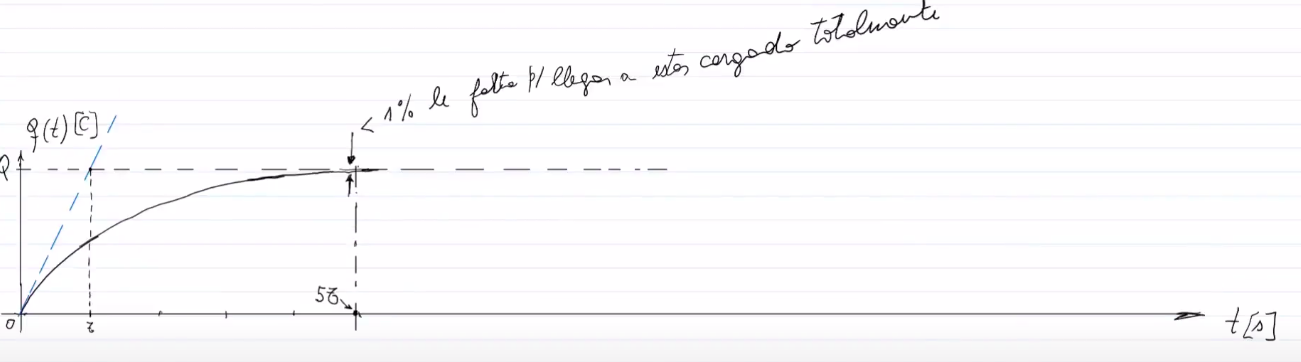 < 1% le falta p/ llegar a estar cargado totalmente
q(t) [C]
Q
5τ
0
τ
t [s]